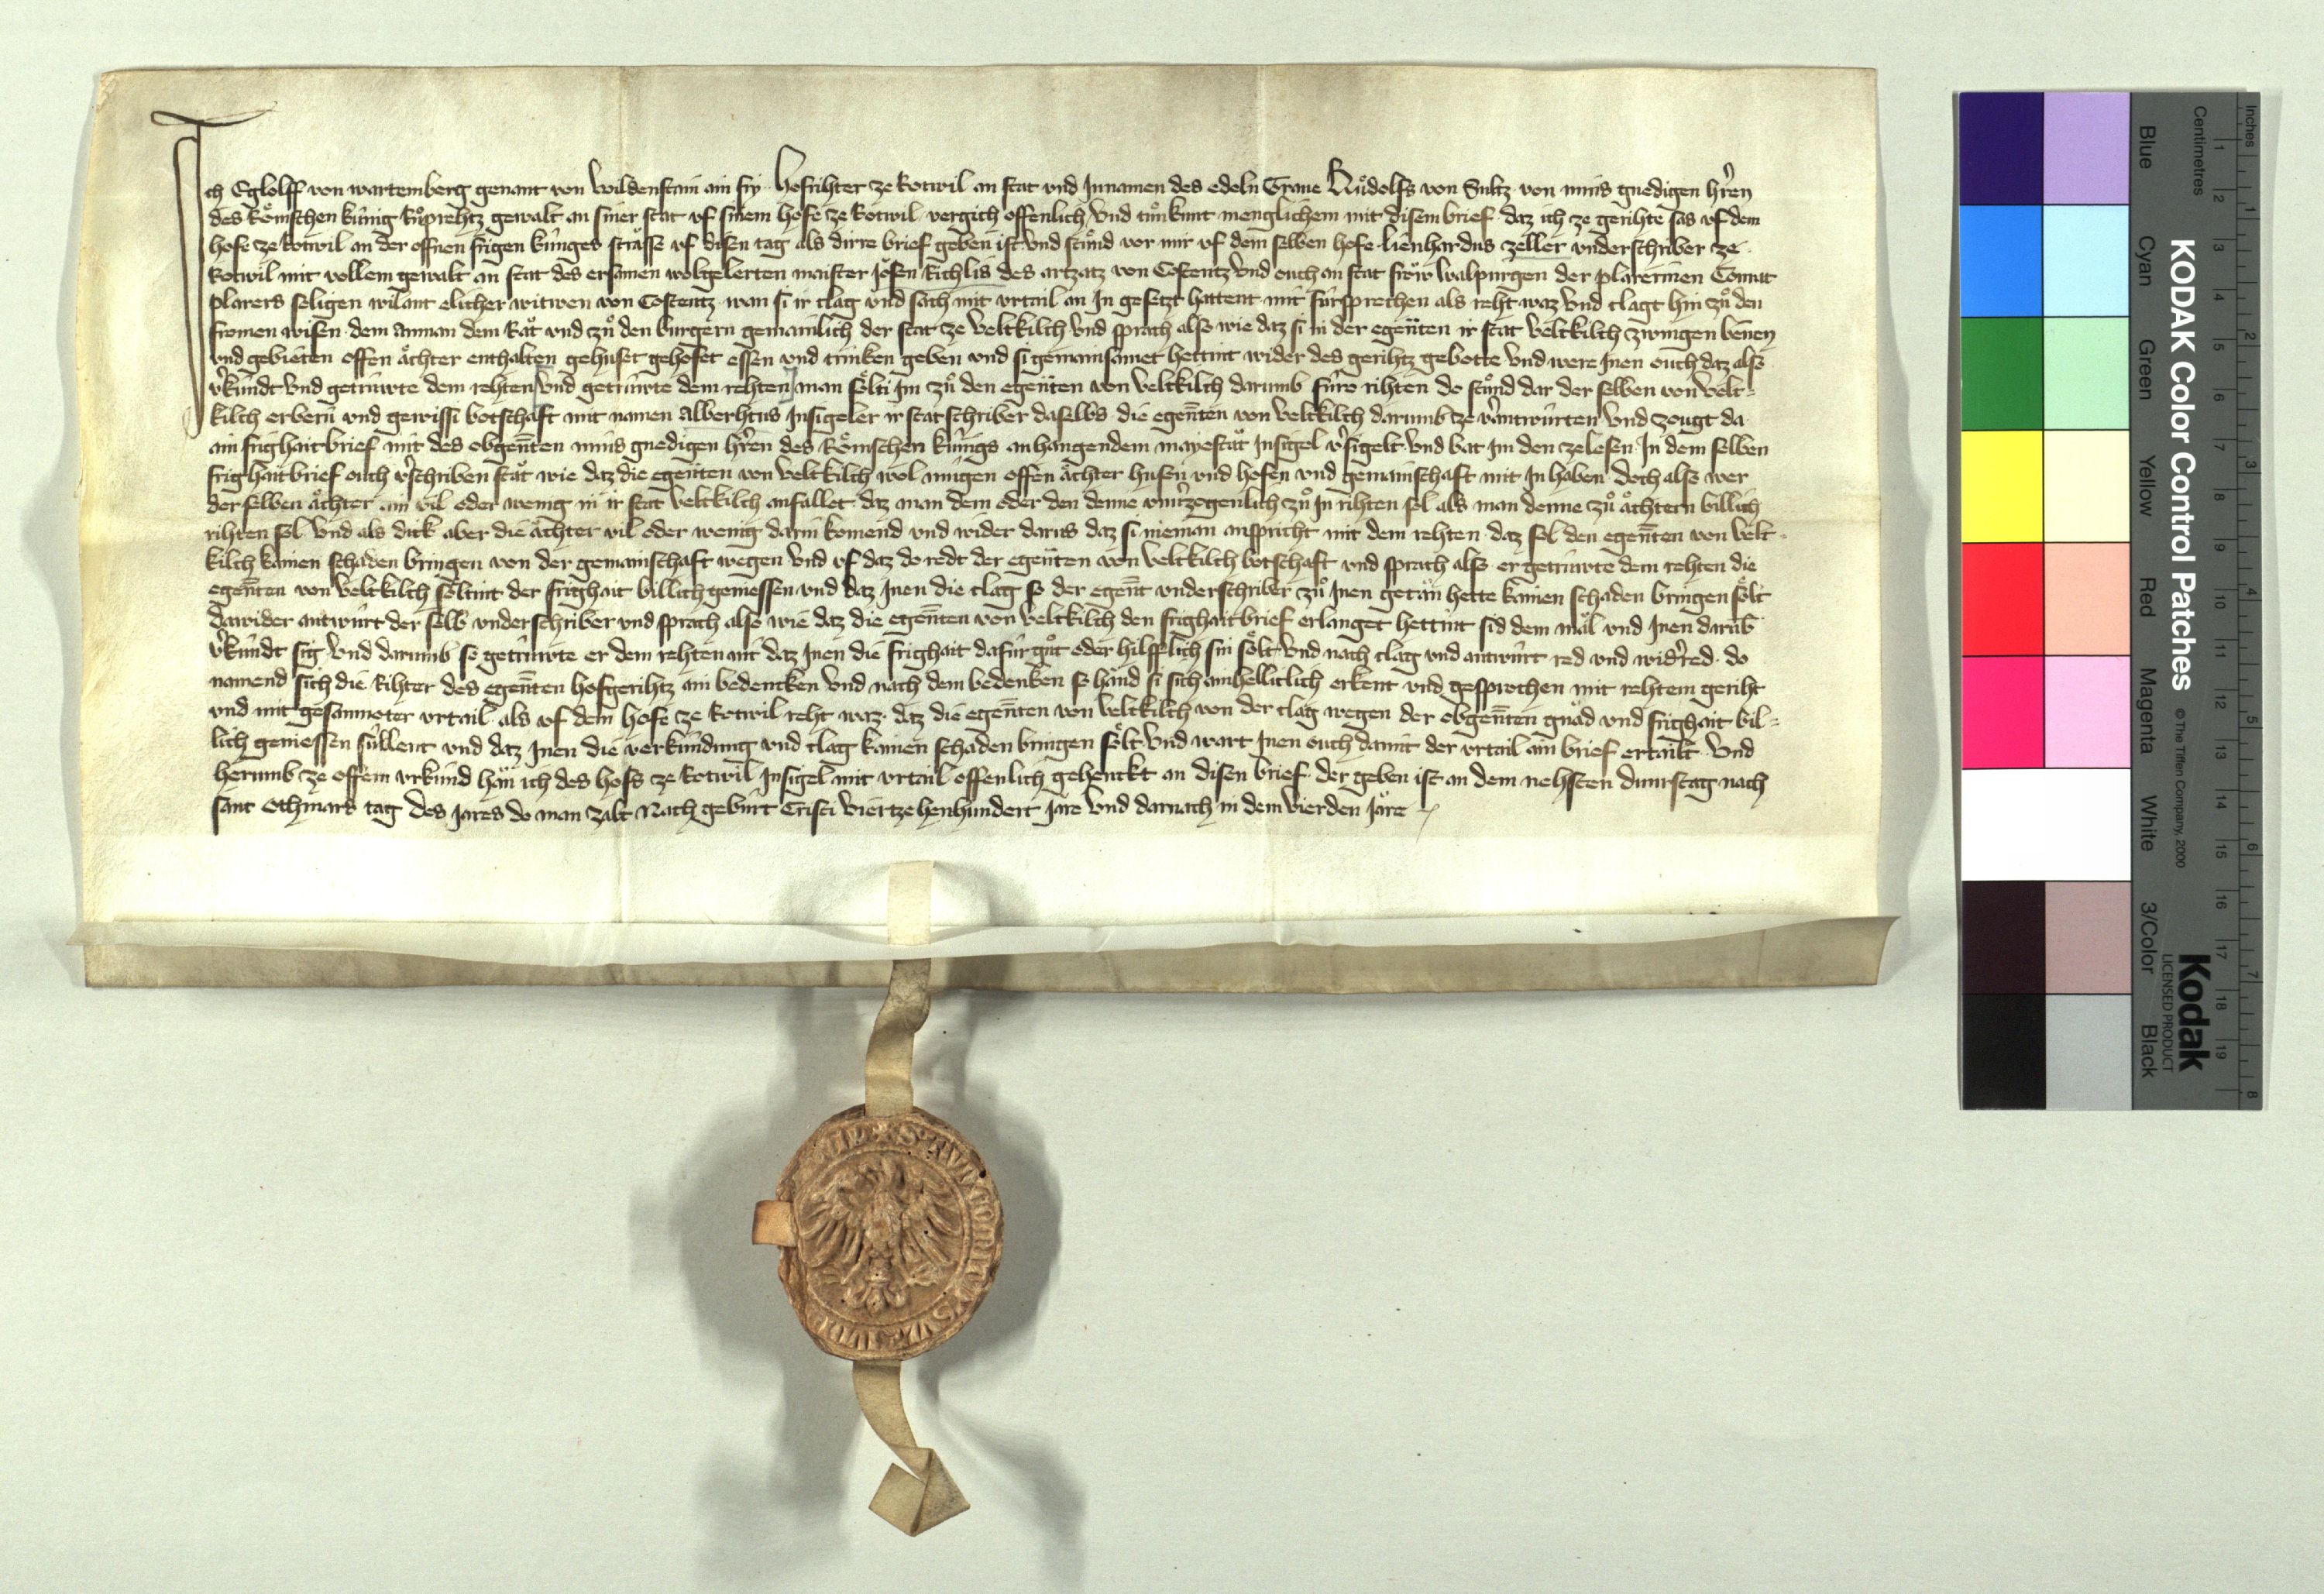 Ich Eglolff von wartemberg genant von Wildenstain ain fry Hofrihter ze Rotwil an stat vnd Innamen des edeln Graue Růdolfs von Sultz von mins gnedigen hr̄en
des Rômschen kúnig Růprehtz gewalt an siner stat vf sinem hofe ze Rotwil vergich offenlich vnd tůn kunt menglichem mit disem brief daz ich ze gerihte sas vf dem
hofe ze Rotwil an der offnen frigen kúnges străsse vf disen tag als dirre brief geben ist vnd stůnd vor mir vf dem selben hofe lienhardus zeller vnderschriber ze
Rotwil mit vollem gewalt an stat des ersamen wolgelerten maister Jôsen Richlis des artzatz von Costentz vnd ouch an stat frôw walpurgen der plarerinen Conrat
plarers seligen wilant elicher witwen von Costentz wan si ir clag vnd sach mit vrtail an In gesetzt hattent mit fúrsprechen als reht waz vnd clagt hin zů den
fromen wisen dem Amman dem Răt vnd zů den burgern gemainlich der stat ze Veltkilch vnd sprach also wie daz si in der egeñten ir stat veltkilch zwingen benen
vnd gebieten offen ăchter enthalten gehuset gehofet essen vnd trinken geben vnd si gemainsamet hettint wider des gerihtz gebotte vnd were Inen ouch daz also
v̓kúndt vnd getrúwte dem rehten vnd getrúwte dem rehten man sôlti im zů den egeñten von veltkilch darumb fúro rihten do stůnd dar der selben von velt-
kilch erberú vnd gewissi botschaft mit namen Alberhtus Insigeler ir statschriber daselbs die egeñten von veltkilch darumb ze v̓antwúrten vnd zougt da
ain frighait brief mit des obgeñten mins gnedigen hr̄en des Rômschen kúnigs anhangendem mayestăt Insigel v̓sigelt vnd bat im den ze lesen In dem selben
frighait brief ouch v̓schriben stăt wie daz die egeñten von veltkilch wol múgen offen ăchter husen vnd hofen vnd gemainschaft mit In haben doch also wer
der selben ăchter ain vil oder wenig in ir stat veltkilch anfallet daz man dem oder den denne vnu̓zogenlich zů In rihten sol als man denne zů ăchtern billich
rihten sol vnd als dick aber die ăchter vil oder wenig darin komend vnd wider darus daz si nieman anspricht mit dem rehten daz sol den egeñten von velt-
kilch kainen schaden bringen von der gemainschaft wegen vnd vf daz do redt der egeñten von veltkilch botschaft vnd sprach also er getrúwte dem rehten die
egeñten von veltkilch sôltint der frighait billich geniessen vnd daz Inen die clag so der egeñt vnderschriber zů Inen getăn hette kainen schaden bringen sôlt
Dawider antwúrt der selb vnderschriber vnd sprach also wie daz die egeñten von veltkilch den frighait brief erlanget hettint sid dem măl vnd Inen darūb
v̓kúndt sig vnd darumb so getrúwte er dem rehten nit daz Inen die frighait dafúr gůt oder hilfflich sin sôlt vnd nach clag vnd antwúrt red vnd wid̓red do
namend sich die Rihter des egeñten hofgerihtz ain bedencken vnd nach dem bedenken so hănd si sich ainhelliclich erkent vnd gesprochen mit rehtem geriht
vnd mit gesamnoter vrtail als vf dem hofe ze Rotwil reht waz daz die egeñten von veltkilch von der clag wegen der obgeñten gnăd vnd frighait bil-
lich geniessen súllent vnd daz Inen die verkúndung vnd clag kainen schaden bringen sôlt vnd wart Inen ouch damit der vrtail ain brief ertailt vnd
herumb ze offem vrkúnd hăn ich des hofs ze Rotwil Insigel mit vrtail offenlich gehenckt an disen brief der geben ist an dem nehsten dunrstag nach
sant Othmars tag des Jares do man zalt Nach gebúrt Cristi Viertzehenhundert Jăre vnd darnach in dem Vierden Jăre
KODAK Color Control Patches © The Tiffen Company, 2000
Kodak
LICENSED PRODUCT
Blue Cyan Green Yellow Red Magenta White 3/Color Black
Centimetres 1 2 3 4 5 6 7 8 9 10 11 12 13 14 15 16 17 18 19
Inches 1 2 3 4 5 6 7 8